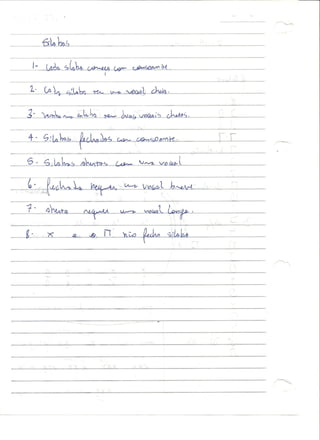 Sílabas
1- Cada sílaba começa com consoante.
2- Cada sílaba tem uma vogal cheia.
3- Nenhuma sílaba tem duas vogais cheias.
4- Sílabas fechadas com consoante.
5- Sílabas abertas com uma vogal
6- fechada requer uma vogal breve
7- aberta requer uma vogal longa.
8- א e ה não fecha sílaba